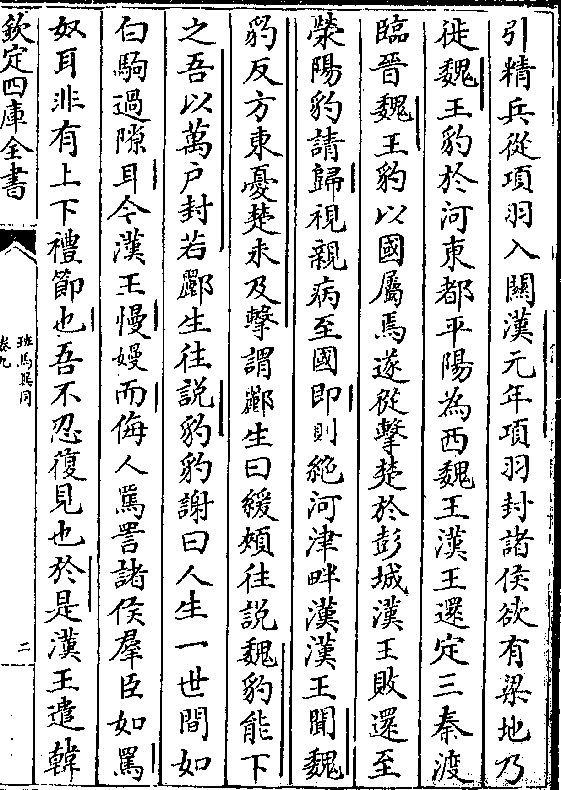 引精兵從項羽入關漢元年項羽封諸侯欲有梁地乃
徙魏王豹於河東都平陽為西魏王漢王還定三秦渡
臨晉魏王豹以國屬焉遂從擊楚於彭城漢王敗還至
滎陽豹請歸視親病至國即則絕河津畔漢漢王聞魏
豹反方東憂楚未及擊謂酈生曰緩頰往說魏豹能下
之吾以萬户封若酈生往說豹豹謝曰人生一世間如
白駒過隙耳今漢王慢嫚而侮人罵詈諸侯羣臣如罵
奴耳非有上下禮節也吾不忍復見也於是漢王遣韓
欽定四庫全書
班馬異同
卷九
二